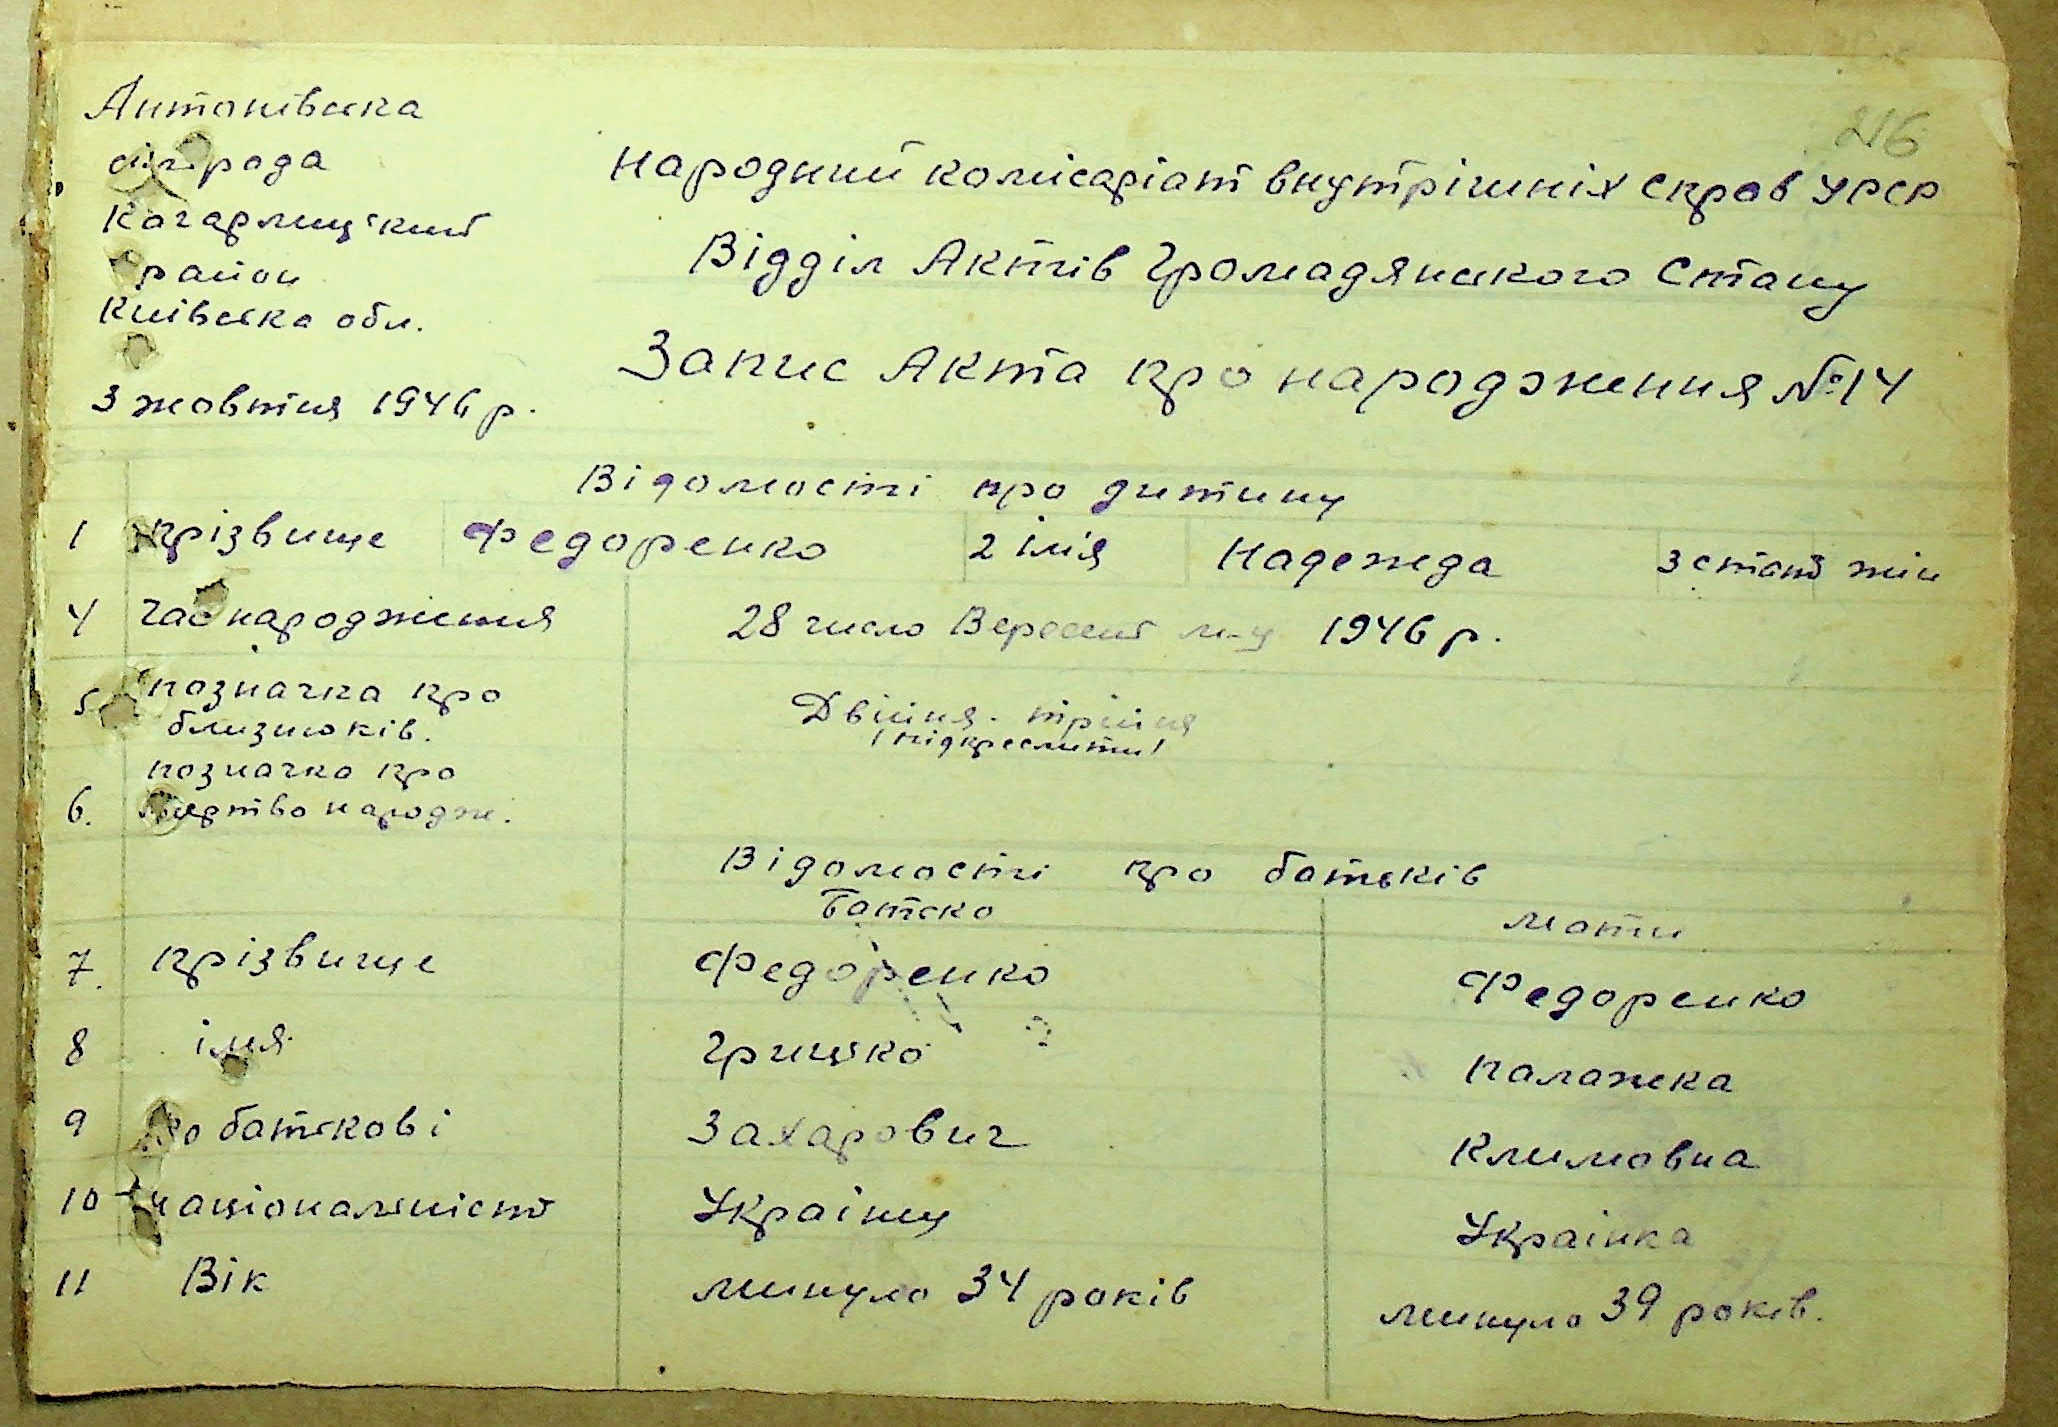 216
Антонівська
сільрада
Кагарлицький
район
Київська обл.
3 жовтня 1946 р.
Народний комісаріат внутрішніх справ УРСР
Відділ Актів Громадянського Стану
Запис Акта про народження №14
Відомості про дитину
1 прізвище Федоренко 2 імія Надежда 3 стать жін
4 час народження 28 число Вересень м-ц 1946 р.
5 позначка про
близнюків.
Двійня. трійня
/підкреслити/
позначка про
6. мертво народж.
Відомості про батьків
Батько мати
7. прізвище Федоренко Федоренко
8 імя Грицько Палажка
9 по батькові Захарович Климовна
10 національність Українц Українка
11 Вік минуло 34 років минуло 39 років.